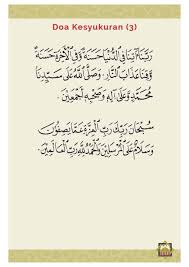 Doa Kesyukuran (3)
رَبَّنَا آتِنَا فِي الدُّنْيَا حَسَنَةً وَفِي الْآخِرَةِ حَسَنَةً
وَقِنَا عَذَابَ النَّارِ. وَصَلَّى اللهُ عَلَى سَيِّدِنَا
مُحَمَّدٍ وَعَلَى آلِهِ وَصَحْبِهِ أَجْمَعِينَ.
سُبْحَانَ رَبِّكَ رَبِّ الْعِزَّةِ عَمَّا يَصِفُونَ
وَسَلَامٌ عَلَى الْمُرْسَلِينَ وَالْحَمْدُ لِلَّهِ رَبِّ الْعَالَمِينَ.